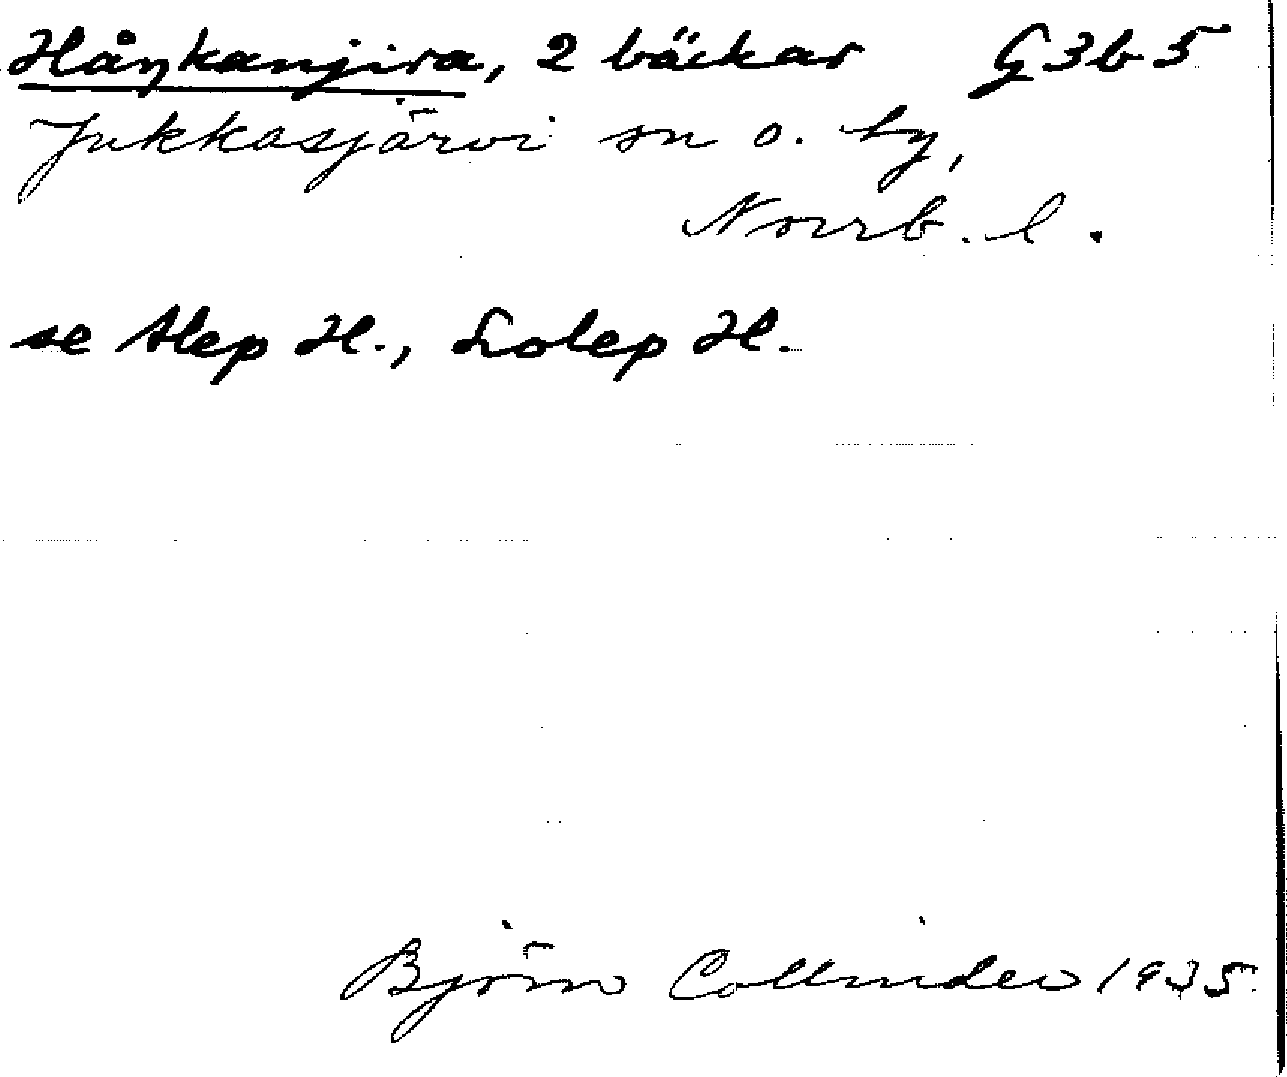 Håŋkanjira, 2 bäckar G3b5
Jukkasjärvi sn o. by,
Norrb. l.
se Alep H., Lolep H.
Björn Collinder 1935.